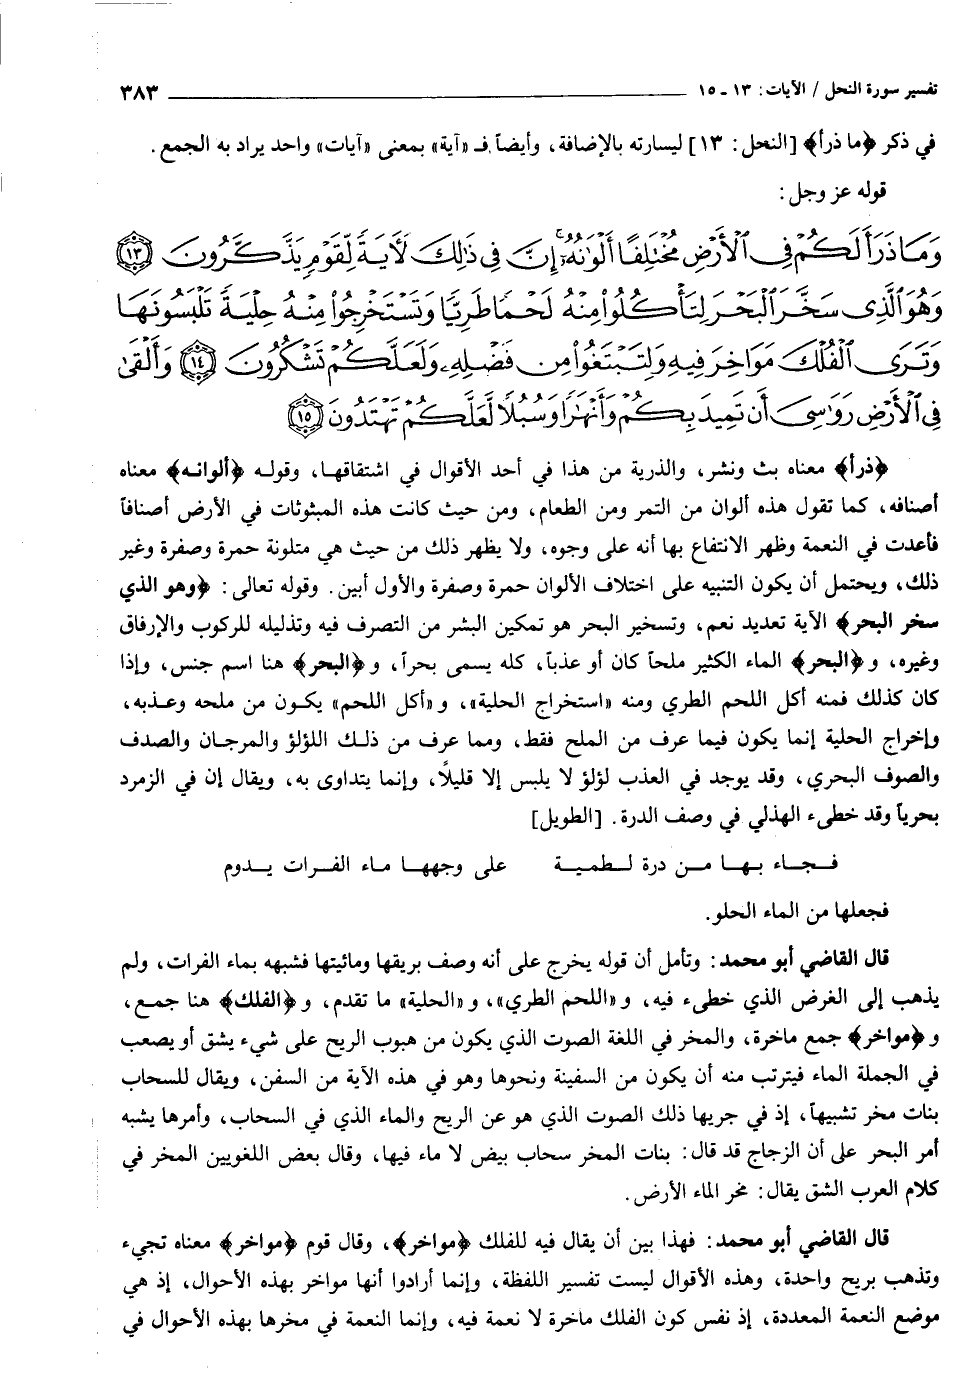 تفسير سورة النحل / الآيات: ١٣ - ١٥ ٣٨٣
في ذكر ﴿ما ذرأ﴾ [النحل: ١٣] ليسارته بالإضافة، وأيضاً فـ «آية» بمعنى «آيات» واحد يراد به الجمع.
قوله عز وجل:
وَمَا ذَرَأَ لَكُمْ فِى ٱلْأَرْضِ مُخْتَلِفًا أَلْوَٰنُهُۥٓ ۗ إِنَّ فِى ذَٰلِكَ لَءَايَةً لِّقَوْمٍ يَذَّكَّرُونَ ١٣
وَهُوَ ٱلَّذِى سَخَّرَ ٱلْبَحْرَ لِتَأْكُلُوا۟ مِنْهُ لَحْمًا طَرِيًّا وَتَسْتَخْرِجُوا۟ مِنْهُ حِلْيَةً تَلْبَسُونَهَا
وَتَرَى ٱلْفُلْكَ مَوَاخِرَ فِيهِ وَلِتَبْتَغُوا۟ مِن فَضْلِهِۦ وَلَعَلَّكُمْ تَشْكُرُونَ ١٤ وَأَلْقَىٰ
فِى ٱلْأَرْضِ رَوَٰسِىَ أَن تَمِيدَ بِكُمْ وَأَنْهَٰرًا وَسُبُلًا لَّعَلَّكُمْ تَهْتَدُونَ ١٥
﴿ذرأ﴾ معناه بث ونشر، والذرية من هذا في أحد الأقوال في اشتقاقها، وقوله ﴿ألوانه﴾ معناه
أصنافه، كما تقول هذه ألوان من التمر ومن الطعام، ومن حيث كانت هذه المبثوثات في الأرض أصنافاً
فأعدت في النعمة وظهر الانتفاع بها أنه على وجوه، ولا يظهر ذلك من حيث هي متلونة حمرة وصفرة وغير
ذلك، ويحتمل أن يكون التنبيه على اختلاف الألوان حمرة وصفرة والأول أبين. وقوله تعالى: ﴿وهو الذي
سخر البحر﴾ الآية تعديد نعم، وتسخير البحر هو تمكين البشر من التصرف فيه وتذليله للركوب والإرفاق
وغيره، و﴿البحر﴾ الماء الكثير ملحاً كان أو عذباً، كله يسمى بحراً، و﴿البحر﴾ هنا اسم جنس، وإذا
كان كذلك فمنه أكل اللحم الطري ومنه «استخراج الحلية»، و«أكل اللحم» يكون من ملحه وعذبه،
وإخراج الحلية إنما يكون فيما عرف من الملح فقط، ومما عرف من ذلك اللؤلؤ والمرجان والصدف
والصوف البحري، وقد يوجد في العذب لؤلؤ لا يلبس إلا قليلًا، وإنما يتداوى به، ويقال إن في الزمرد
بحرياً وقد خطىء الهذلي في وصف الدرة. [الطويل]
فجاء بها من درة لطمية على وجهها ماء الفرات يدوم
فجعلها من الماء الحلو.
قال القاضي أبو محمد: وتأمل أن قوله يخرج على أنه وصف بريقها ومائيتها فشبهه بماء الفرات، ولم
يذهب إلى الغرض الذي خطىء فيه، و«اللحم الطري»، و«الحلية» ما تقدم، و﴿الفلك﴾ هنا جمع،
و﴿مواخر﴾ جمع ماخرة، والمخر في اللغة الصوت الذي يكون من هبوب الريح على شيء يشق أو يصعب
في الجملة الماء فيترتب منه أن يكون من السفينة ونحوها وهو في هذه الآية من السفن، ويقال للسحاب
بنات مخر تشبيهاً، إذ في جريها ذلك الصوت الذي هو عن الريح والماء الذي في السحاب، وأمرها يشبه
أمر البحر على أن الزجاج قد قال: بنات المخر سحاب بيض لا ماء فيها، وقال بعض اللغويين المخر في
كلام العرب الشق يقال: مخر الماء الأرض.
قال القاضي أبو محمد: فهذا بين أن يقال فيه للفلك ﴿مواخر﴾، وقال قوم ﴿مواخر﴾ معناه تجيء
وتذهب بريح واحدة، وهذه الأقوال ليست تفسير اللفظة، وإنما أرادوا أنها مواخر بهذه الأحوال، إذ هي
موضع النعمة المعددة، إذ نفس كون الفلك ماخرة لا نعمة فيه، وإنما النعمة في مخرها بهذه الأحوال في